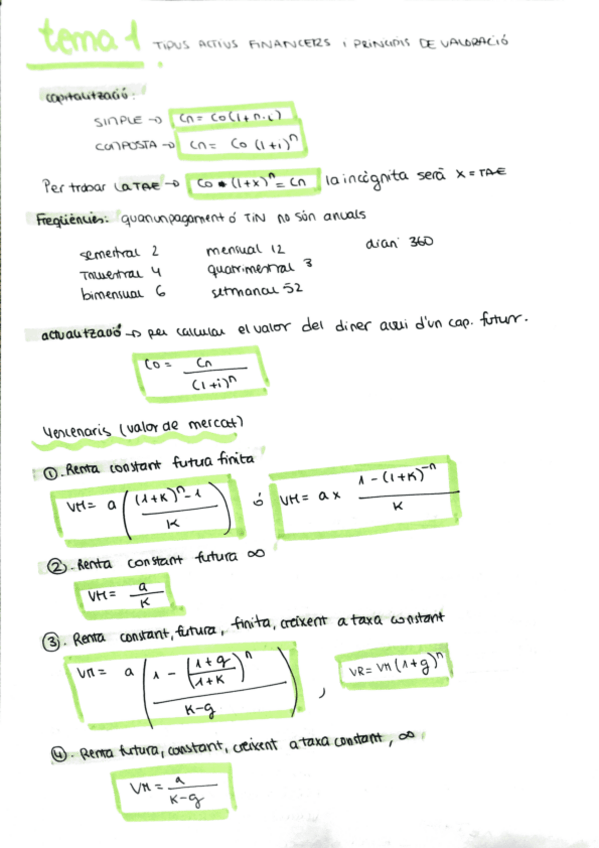 tema 1 TIPUS ACTIUS FINANCERS I PRINCIPIS DE VALORACIÓ
capitalització:
SIMPLE → Cn = Co (1+n·i)
COMPOSTA → Cn = Co (1+i)^n
Per trobar LA TAE → Co · (1+x)^n = Cn la incògnita serà x = TAE
Freqüències: quan un pagament ó TIN no són anuals
semestral 2 mensual 12 diari 360
Trimestral 4 quatrimestral 3
bimensual 6 setmanal 52
actualització → per calcular el valor del diner avui d'un cap. futur.
Co = Cn / (1+i)^n
4 escenaris (valor de mercat)
①. Renta constant futura finita
VM = a ( (1+K)^n - 1 / K ) ó VM = a x 1 - (1+K)^-n / K
②. Renta constant futura ∞
VM = a / K
③. Renta constant, futura, finita, creixent a taxa constant
VM = a ( 1 - (1+g / 1+K)^n / K-g ) , VR = VM (1+g)^n
④. Renta futura, constant, creixent a taxa constant, ∞
VM = a / K-g